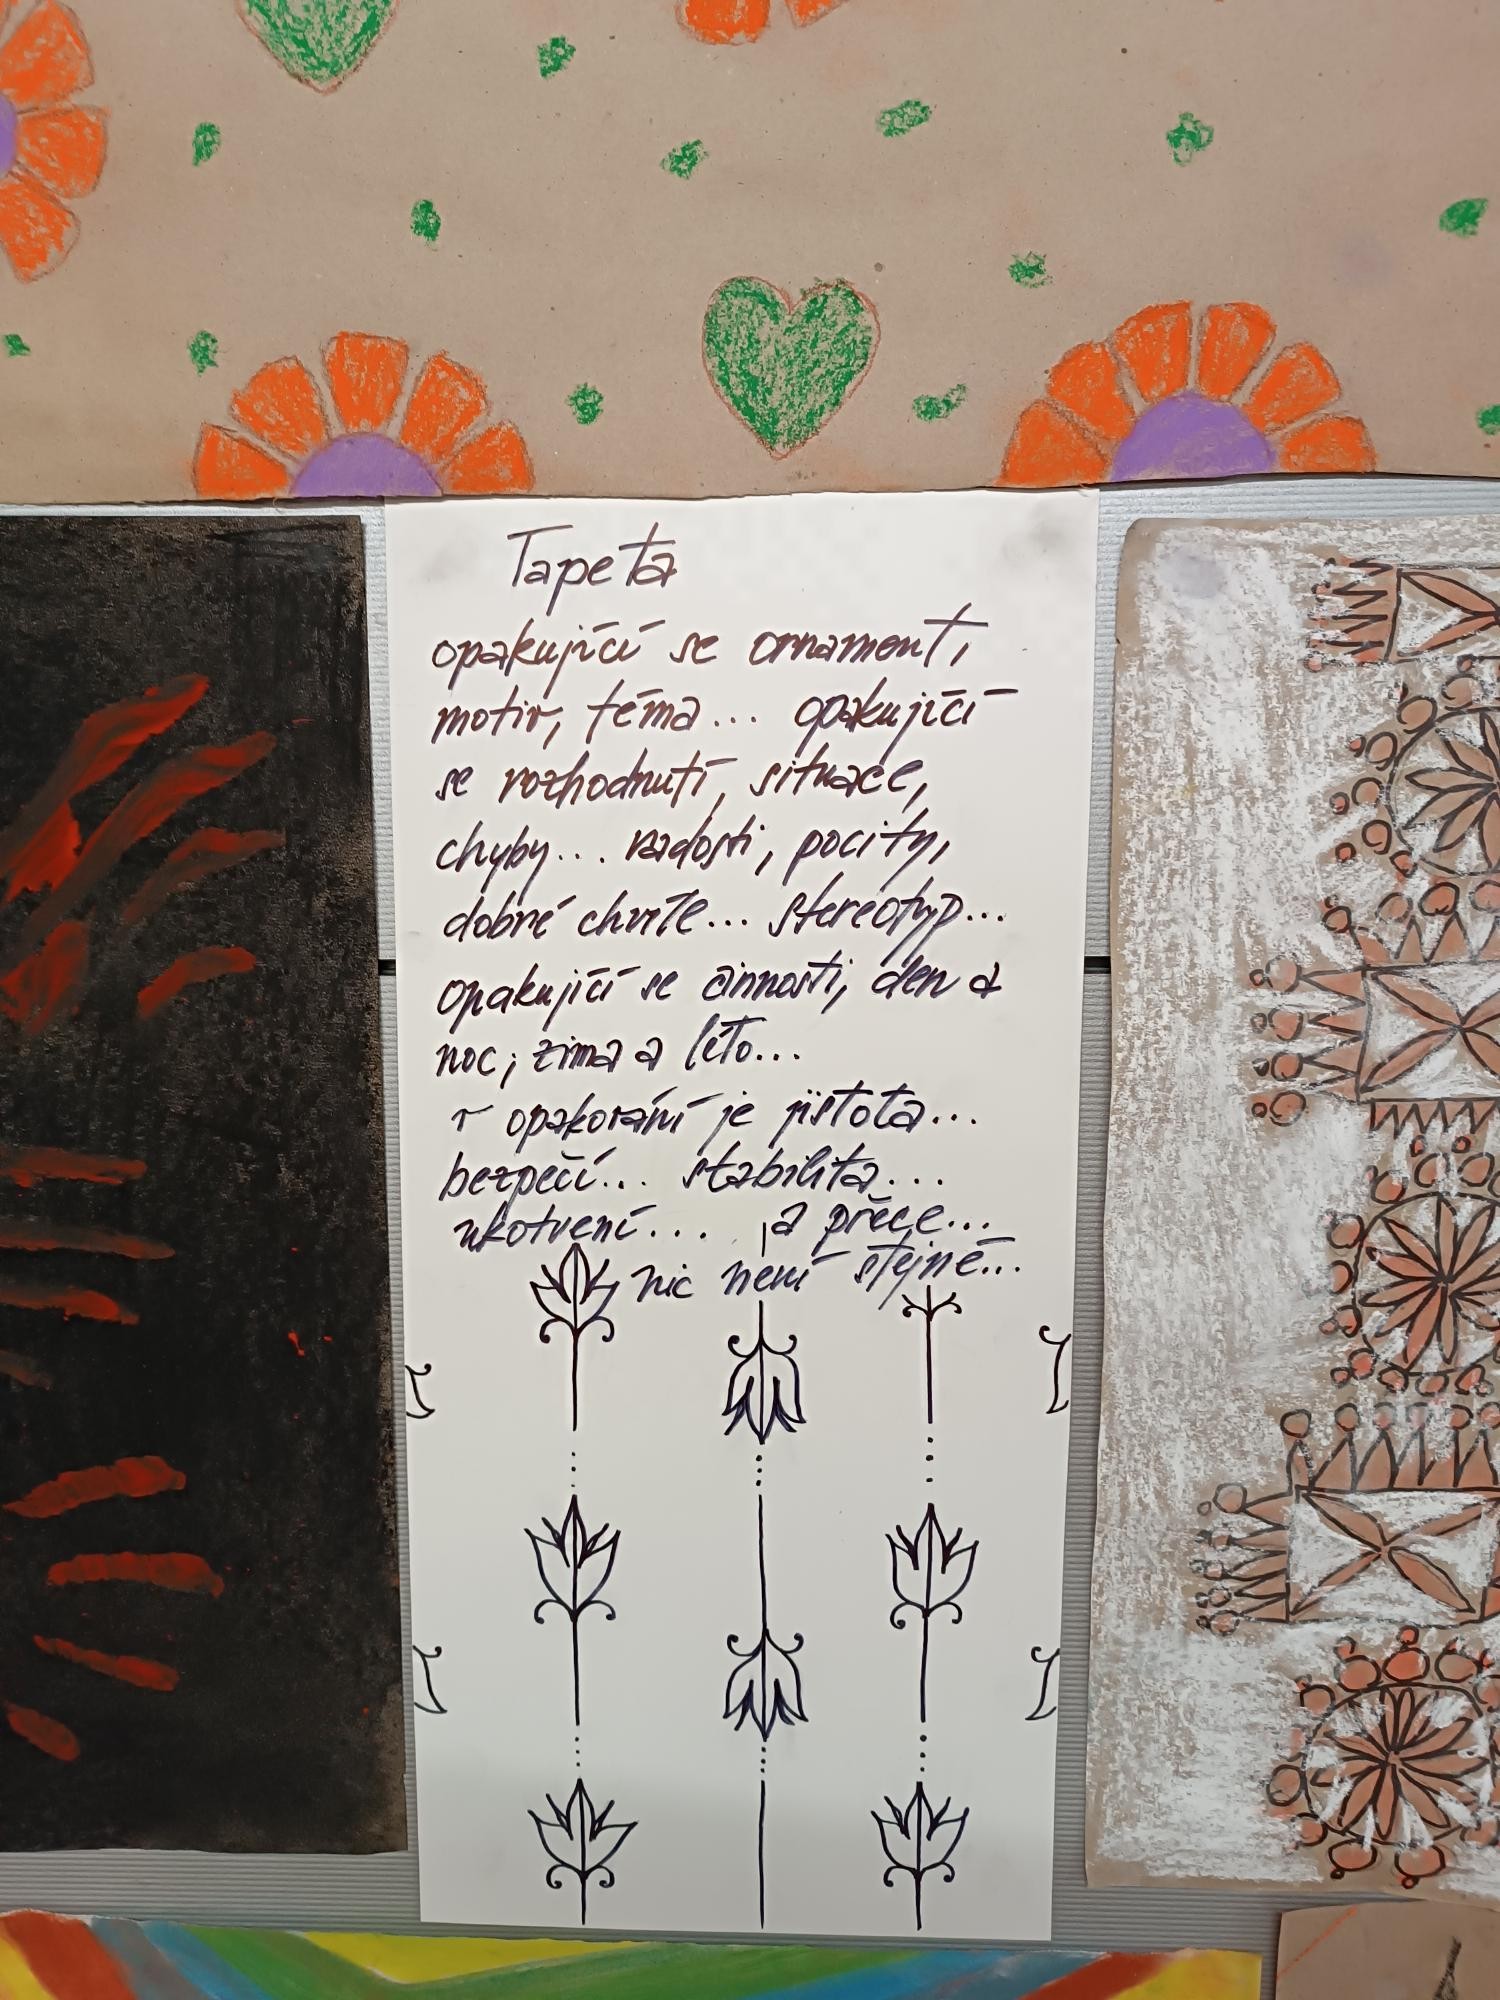 Tapeta
opakující se ornament,
motiv, téma... opakující
se rozhodnutí, situace,
chyby... radosti, pocity,
dobré chvíle... stereotyp...
opakující se činnosti, den a
noc, zima a léto...
v opakování je jistota...
bezpečí... stabilita...
ukotvení... a přece...
nic není stejné...